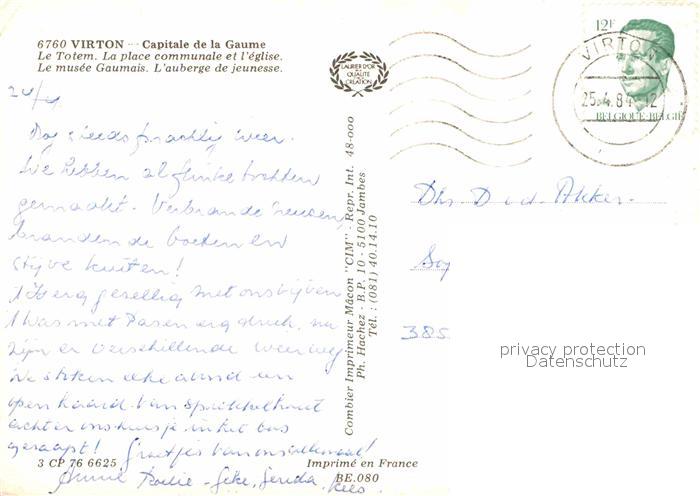 6760 VIRTON - Capitale de la Gaume
Le Totem. La place communale et l'église.
Le musée Gaumais. L'auberge de jeunesse.
LAURIER D'OR
DE LA
QUALITE
CREATION
12F
VIRTON
25.4.84 12
BELGIQUE-BELGIË
24/4
Dag steeds prachtig weer.
We hebben al flinke tochten
gemaakt. Verbrande neuzen,
brandende boeken en
stijve kuiten!
't Is erg gezellig met ons vijven
't Was met Pasen erg druk, nu
zijn er verschillende weer weg
We stoken elke avond een
open haard van sprokkelhout
achter ons huisje in het bos
geraapt! Groetjes van ons allemaal!
Gerda, Kees.
Combier Imprimeur Mâcon "CIM" - Repr. Int. 48-000
Ph. Hachez - B.P. 10 - 5100 Jambes
Tél. : (081) 40.14.10
Dhr D. d. Akker.
385
privacy protection
Datenschutz
3 CP 76 6625
Imprimé en France
BE.080